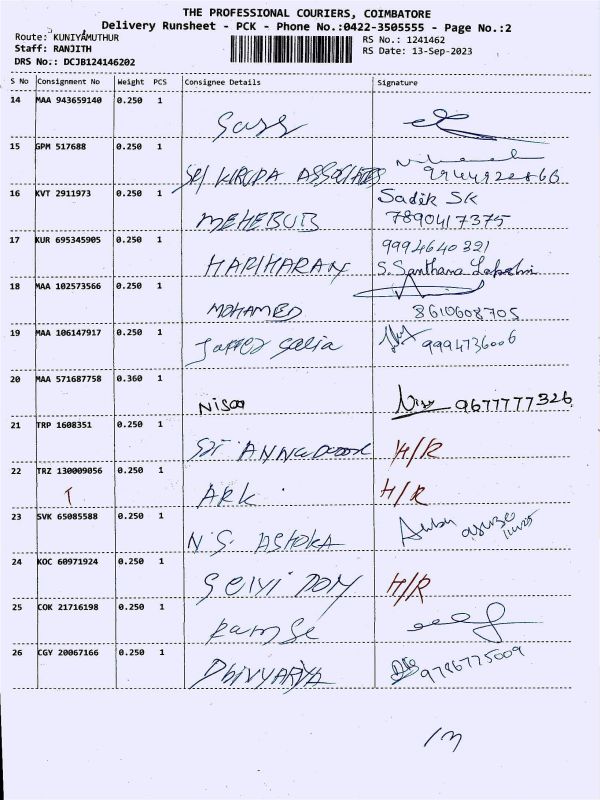 THE PROFESSIONAL COURIERS, COIMBATORE
Delivery Runsheet - PCK - Phone No.:0422-3505555 - Page No.:2
Route: KUNIYAMUTHUR
RS No.: 1241462
Staff: RANJITH
RS Date: 13-Sep-2023
DRS No.: DCJB124146202
S No Consignment No Weight PCS Consignee Details Signature
14 MAA 943659140 0.250 1
15 GPM 517688 0.250 1
SRI KIRUPA ASSOCIATES
16 KVT 2911973 0.250 1
Sadik SK
MEHEBUB 7890417375
17 KUR 695345905 0.250 1
9994640321
HARIHARAN S. Santhana Lakshmi
18 MAA 102573566 0.250 1
MOHAMED 8610608705
19 MAA 106147917 0.250 1
9994736006
20 MAA 571687758 0.360 1
9677777326
21 TRP 1608351 0.250 1
SRI H/R
22 TRZ 130009056 0.250 1
T ARK. H/R
23 SVK 65085588 0.250 1
N.S. ASHOKA
24 KOC 60971924 0.250 1
H/R
25 COK 21716198 0.250 1
26 CGY 20067166 0.250 1
9786775009
13